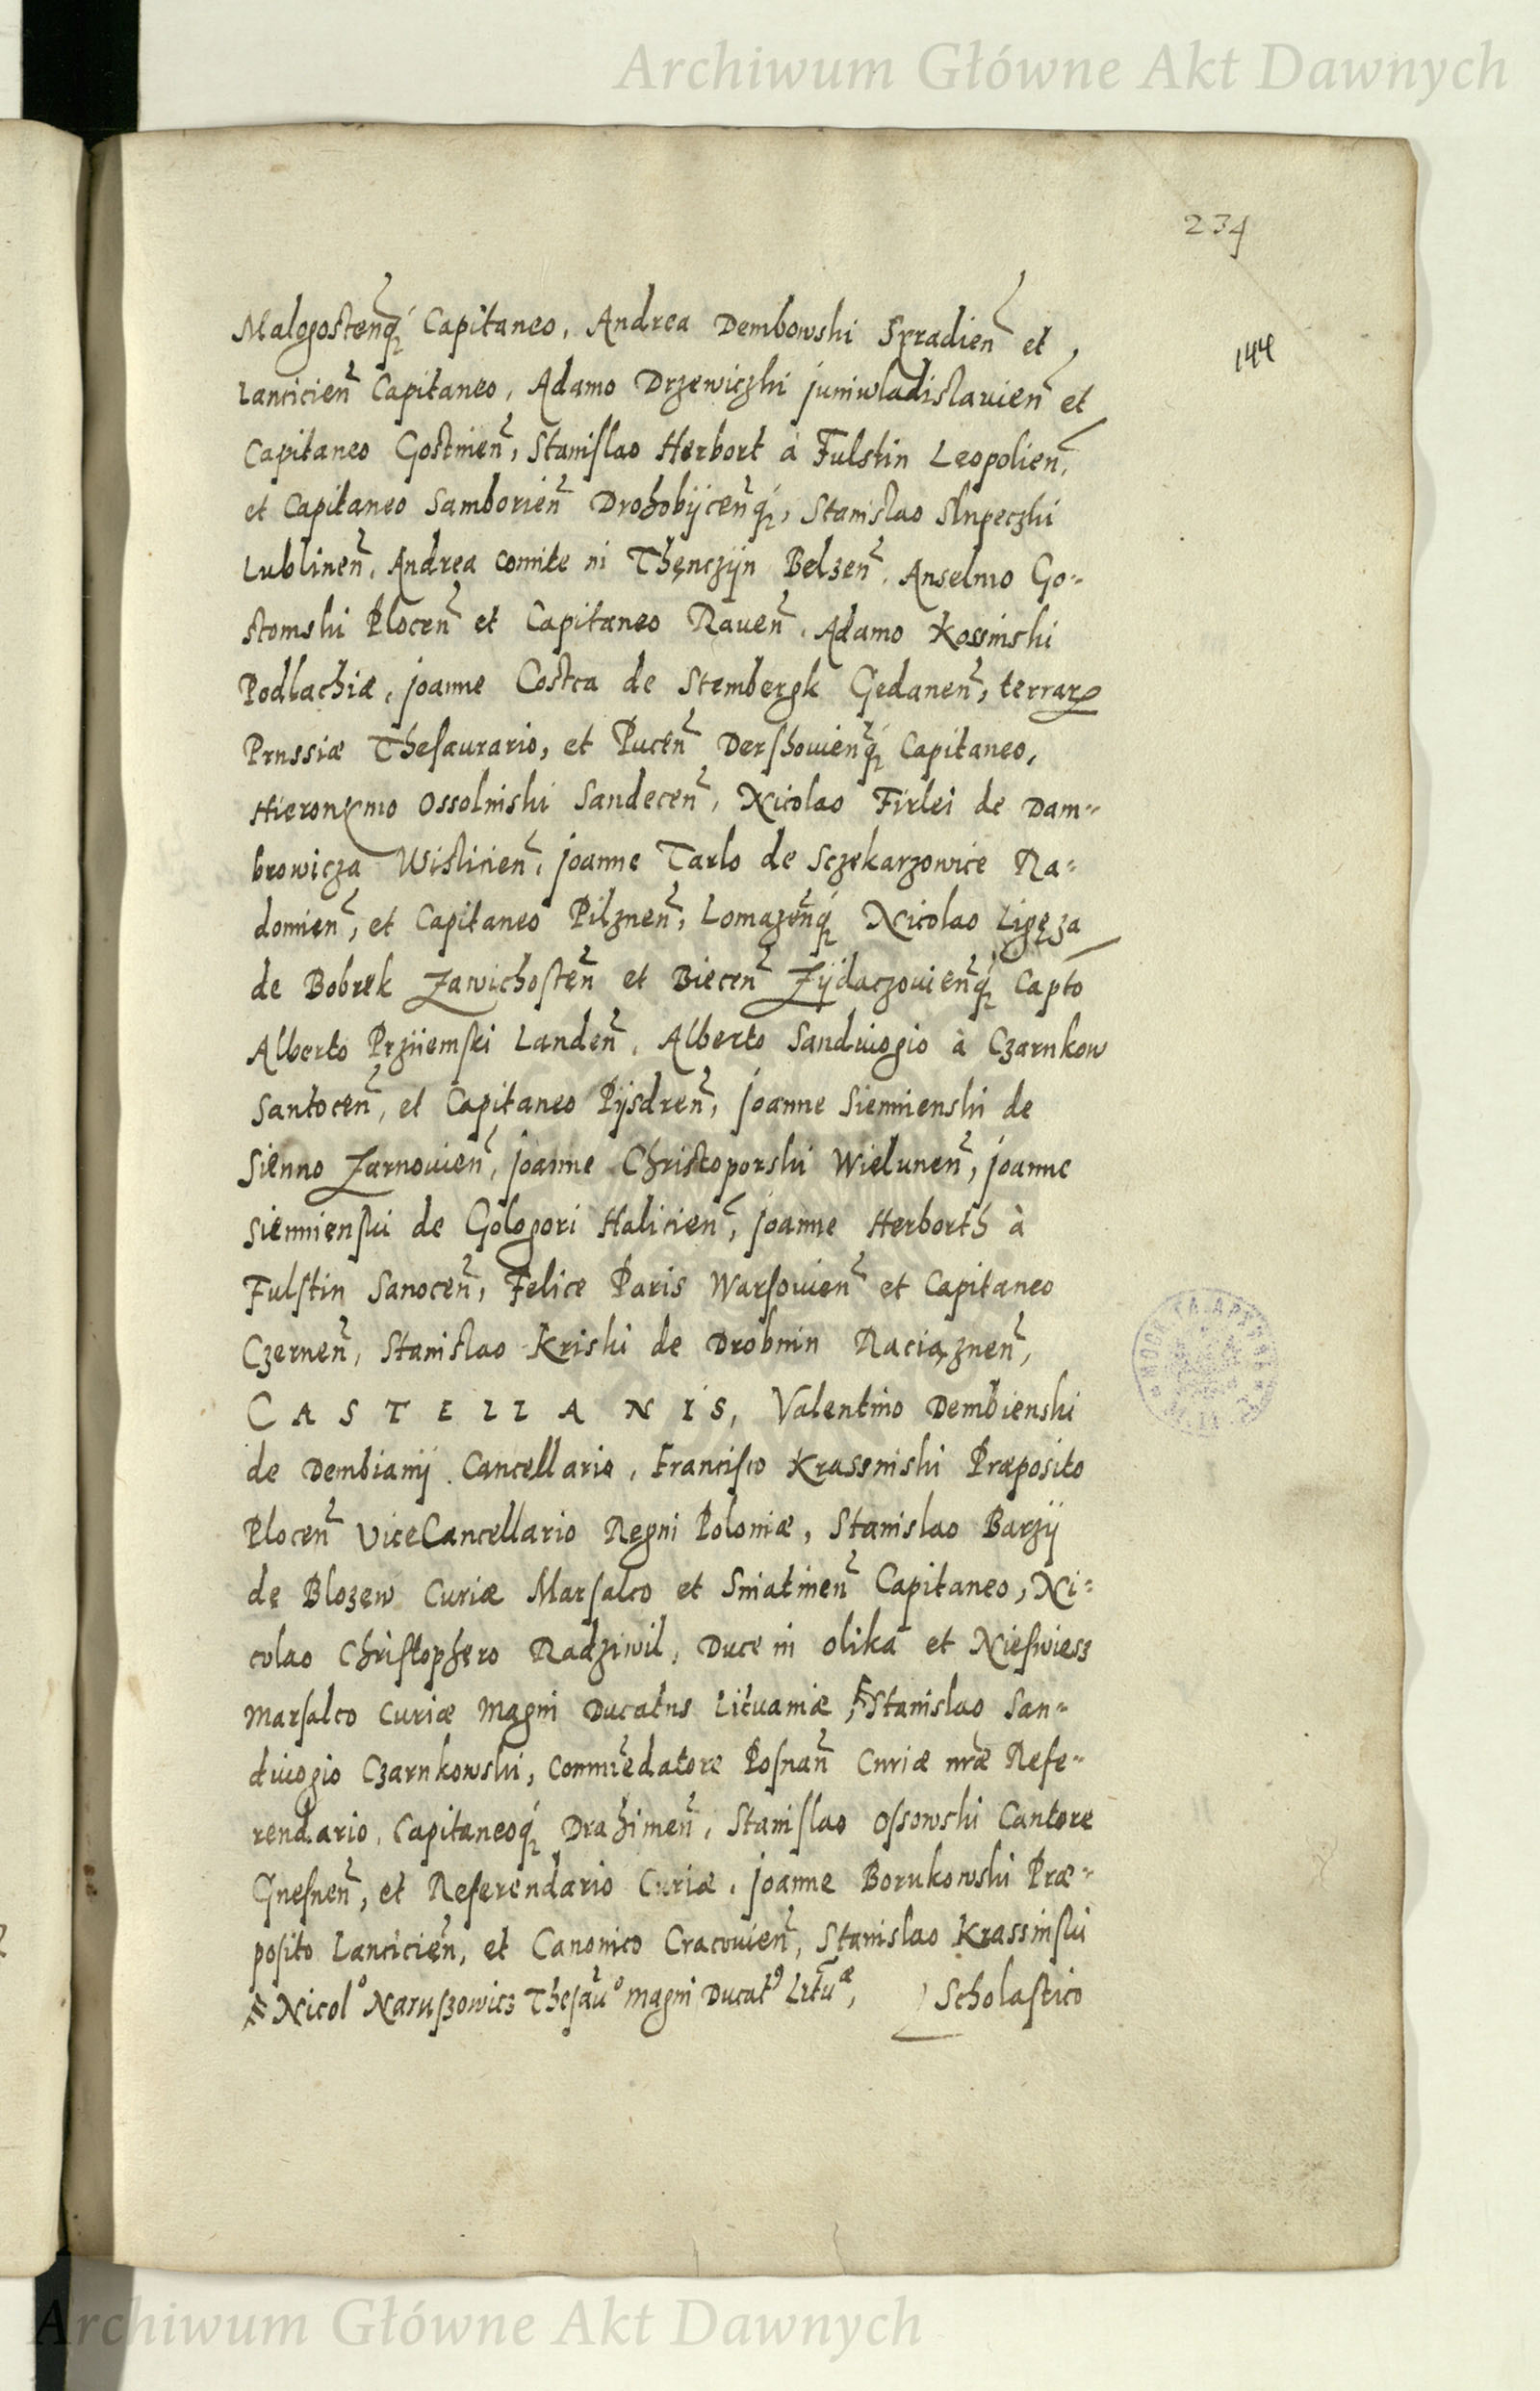 Archiwum Główne Akt Dawnych
234
144
Malogostenq́; Capitaneo, Andrea Dembowski Syradień et
Lancicień Capitaneo, Adamo Drzewiczki Juniwladislauień et
Capitaneo Gostinień, Stanislao Herbort à Fulstin Leopolień,
et Capitaneo Samborień Drohobijceńq́;, Stanislao Slupeczki
Lublineń, Andrea comite in Thęnczijn Belzeń, Anselmo Go-
stomski Ploceń et Capitaneo Raueń, Adamo Kossinski
Podlachiæ, Joanne Costca de Stembergk Gedaneń, terrarꝝ
Prussiæ Thesaurario, et Puceń Dershouieńq́; Capitaneo,
Hieronymo Ossolinski Sandeceń, Nicolao Firlei de Dam-
browicza Wislicień, Joanne Tarlo de Sczekarzowice Ra-
domień, et Capitaneo Pilzneń, Lomazeńq́; Nicolao Ligęza
de Bobrek Zawichosteń et Bieceń Zÿdaczouieńq́; Capto
Alberto Przijemski Landeń, Alberto Sandiuogio à Czarnkow
Santoceń, et Capitaneo Pijsdreń, Joanne Siennienski de
Sienno Zarnouień, Joanne Christoporski Wieluneń, Joanne
Siennienski de Gologori Halicień, Joanne Herborth à
Fulstin Sanoceń, Felice Paris Warsouień et Capitaneo
Czerneń, Stanislao Kriski de Drobnin Raciązneń,
CASTELLANIS, Valentino Dembienski
de Dembianij Cancellario, Francisco Krassinski Præposito
Ploceń ViceCancellario Regni Poloniæ, Stanislao Barzij
de Blozew Curiæ Marsalco et Sniatineń Capitaneo, Ni-
colao Christophero Radziwil, Duce in Olika et Nieswiess
Marsalco Curiæ Magni Ducatus Lituaniæ, Stanislao San-
diuogio Czarnkowski, Commēdatore Posnań Curiæ nr̃æ Refe-
rendario, Capitaneoq́; Drahimeń, Stanislao Ossowski Cantore
Gnesneń, et Referendario Curiæ, Joanne Borukowski Præ-
posito Lancicień, et Canonico Cracouień, Stanislao Krassinski
Nicolº Naruszowicz Thesau̅º Magni Ducatꝰ Litu̅æ, Scholastico
Archiwum Główne Akt Dawnych